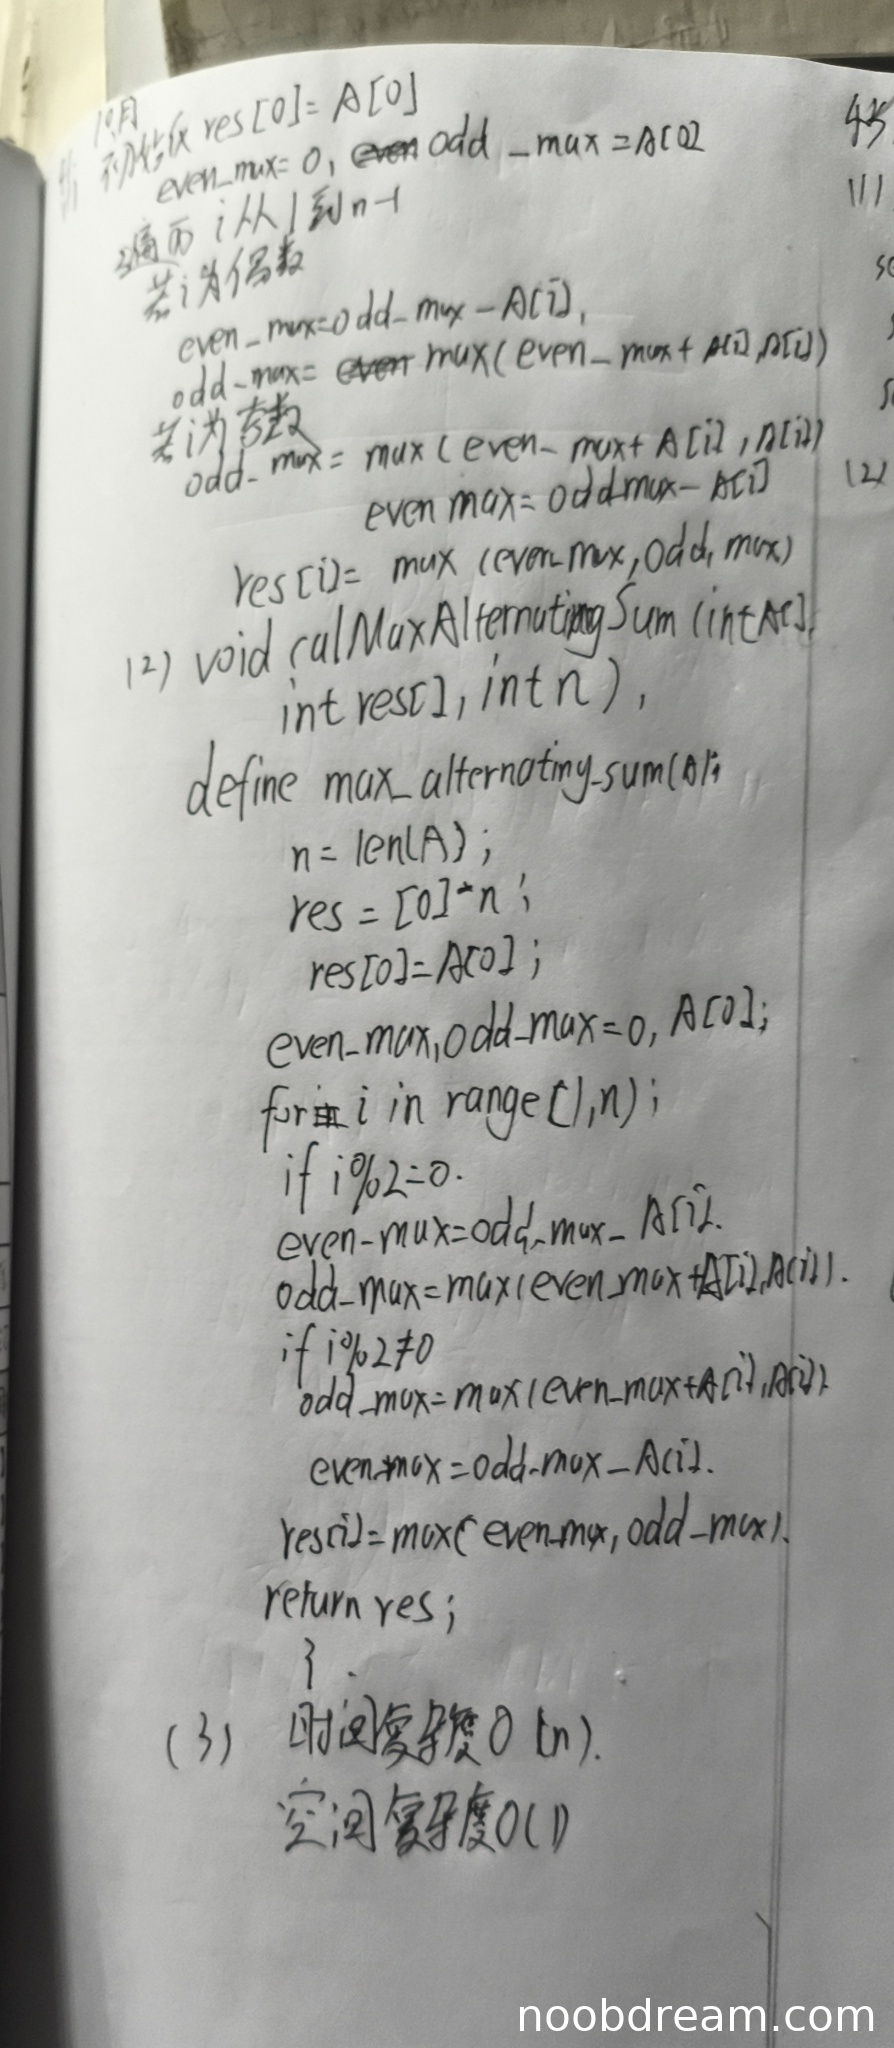 初始化 res[0]=A[0]
even_max=0, odd_max=A[0]
遍历 i从1到n-1
若i为偶数
even_max=odd_max-A[i],
odd_max= max(even_max+A[i],A[i])
若i为奇数
odd_max= max(even_max+A[i],A[i])
even max=odd max-A[i]
res[i]= max(even_max,odd_max)
(2) void calMaxAlternatingSum(int A[],
int res[], int n),
define max_alternating_sum(A);
n=len(A);
res=[0]*n;
res[0]=A[0];
even_max,odd_max=0, A[0];
for i in range(1,n);
if i%2=0.
even_max=odd_max-A[i].
odd_max=max(even_max+A[i],A[i]).
if i%2≠0
odd_max=max(even_max+A[i],A[i])
even_max=odd_max-A[i].
res[i]=max(even_max,odd_max).
return res;
}.
(3) 时间复杂度O(n).
空间复杂度O(1)
(1)
(2)
noobdream.com